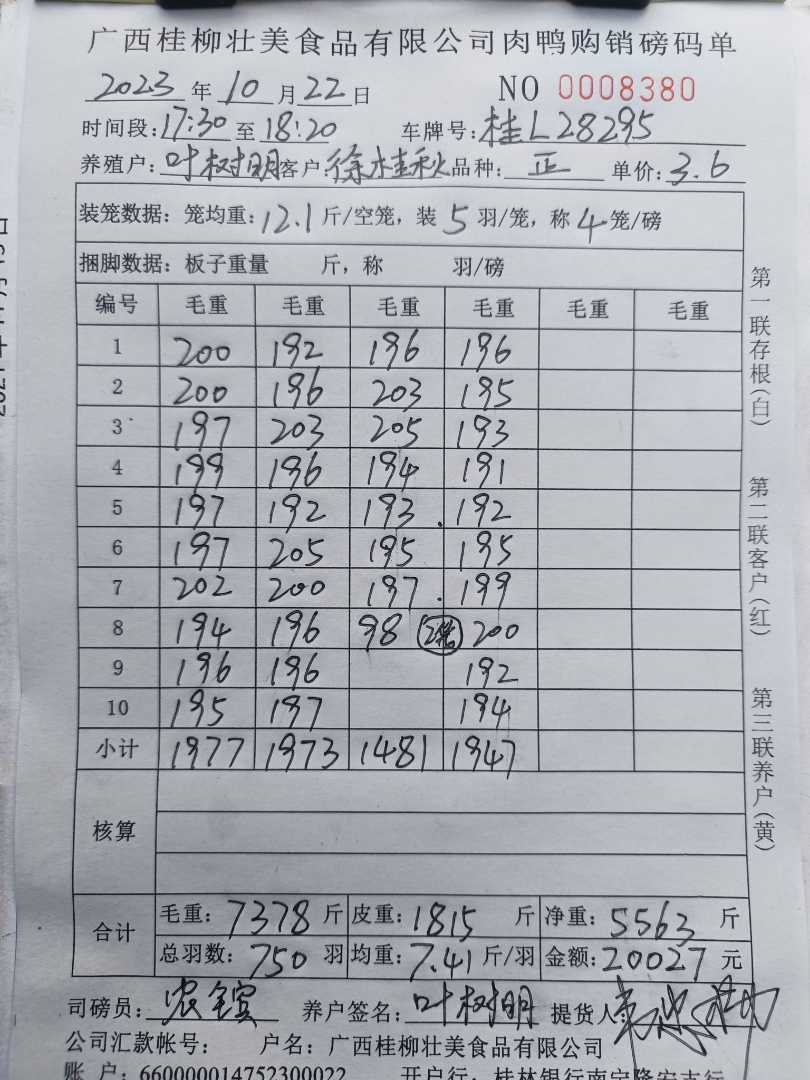 广西桂柳壮美食品有限公司肉鸭购销磅码单
2023年10月22日 NO 0008380
时间段:17:30至18:20 车牌号:桂L28295
养殖户:叶树明客户:徐桂秋品种:正 单价:3.6
装笼数据:笼均重:12.1斤/空笼,装5羽/笼,称4笼/磅
捆脚数据:板子重量 斤,称 羽/磅
编号 毛重 毛重 毛重 毛重 毛重 毛重
1 200 192 196 196
2 200 196 203 195
3 197 203 205 193
4 199 196 194 191
5 197 192 193 192
6 197 205 195 195
7 202 200 197 199
8 194 196 98 2笼 200
9 196 196 192
10 195 197 194
小计 1977 1973 1481 1947
核算
合计
毛重:7378斤 皮重:1815斤 净重:5563斤
总羽数:750羽 均重:7.41斤/羽 金额:20027元
司磅员: 养户签名:叶树明 提货人
公司汇款帐号: 户名:广西桂柳壮美食品有限公司
账 户:660000014752300022 开户行:桂林银行南宁隆安支行
第一联存根(白)
第二联客户(红)
第三联养户(黄)